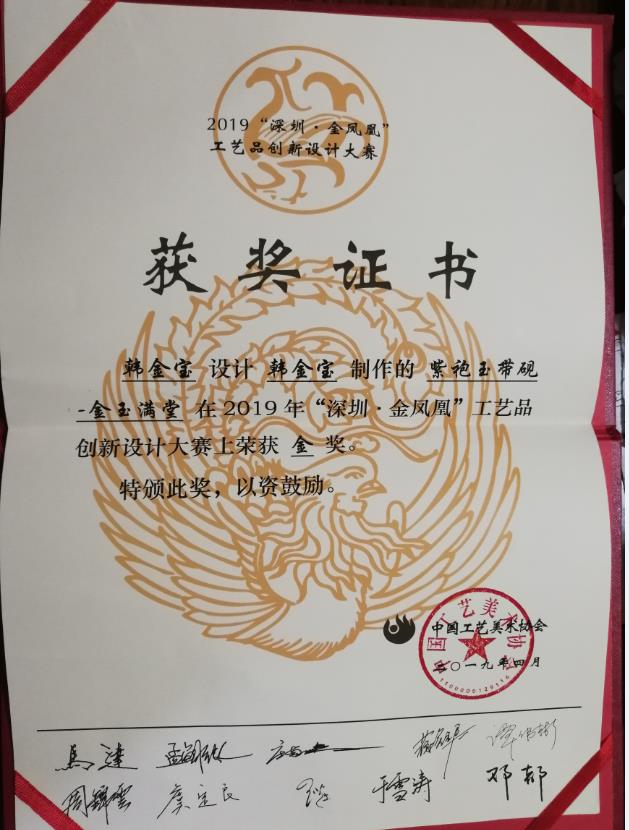 2019“深圳·金凤凰”
工艺品创新设计大赛
获奖证书
韩金宝 设计 韩金宝 制作的 紫袍玉带砚
-金玉满堂 在2019年“深圳·金凤凰”工艺品
创新设计大赛上荣获 金 奖。
特颁此奖，以资鼓励。
中国工艺美术协会
二〇一九年四月
中国工艺美术协会
于雪涛 邓都